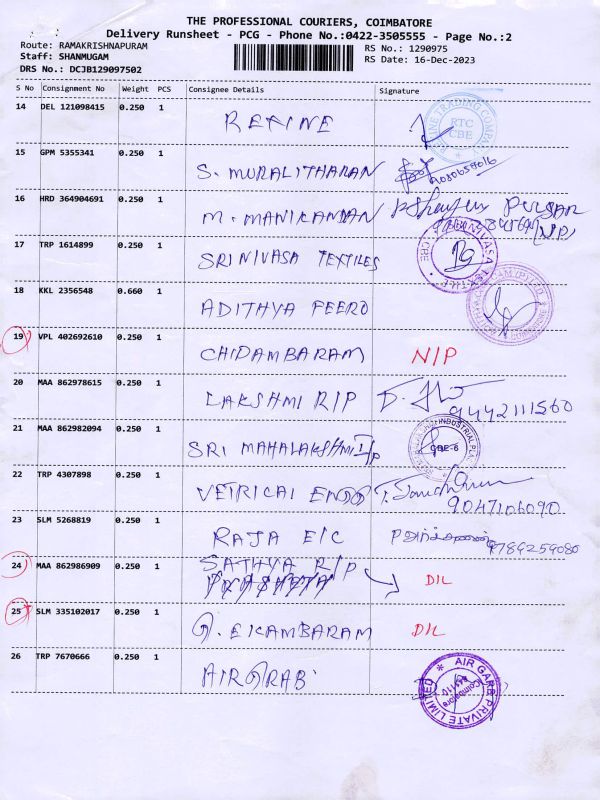 THE PROFESSIONAL COURIERS, COIMBATORE
Delivery Runsheet - PCG - Phone No.:0422-3505555 - Page No.:2
Route: RAMAKRISHNAPURAM
Staff: SHANMUGAM
DRS No.: DCJB129097502
RS No.: 1290975
RS Date: 16-Dec-2023
S No Consignment No Weight PCS Consignee Details Signature
14 DEL 121098415 0.250 1 REFINE
RTC CBE
15 GPM 5355341 0.250 1 S. MURALITHARAN
16 HRD 364904691 0.250 1 M. MANIKANDAN
17 TRP 1614899 0.250 1 SRINIVASA TEXTILES
18 KKL 2356548 0.660 1 ADITHYA FEERO
19 VPL 402692610 0.250 1 CHIDAMBARAM N/P
20 MAA 862978615 0.250 1 LAKSHMI R/P 9442111560
21 MAA 862982094 0.250 1 SRI MAHALAKSHMI I/p
CBE-6
22 TRP 4307898 0.250 1 VETRICAI ENGG 9047106090
23 SLM 5268819 0.250 1 RAJA E/C 9789259080
24 MAA 862986909 0.250 1 SATHYA R/P D/L
25 SLM 335102017 0.250 1 G. EKAMBARAM D/L
26 TRP 7670666 0.250 1 AIRGRAB
AIR GARB PRIVATE LIMITED
Coimbatore